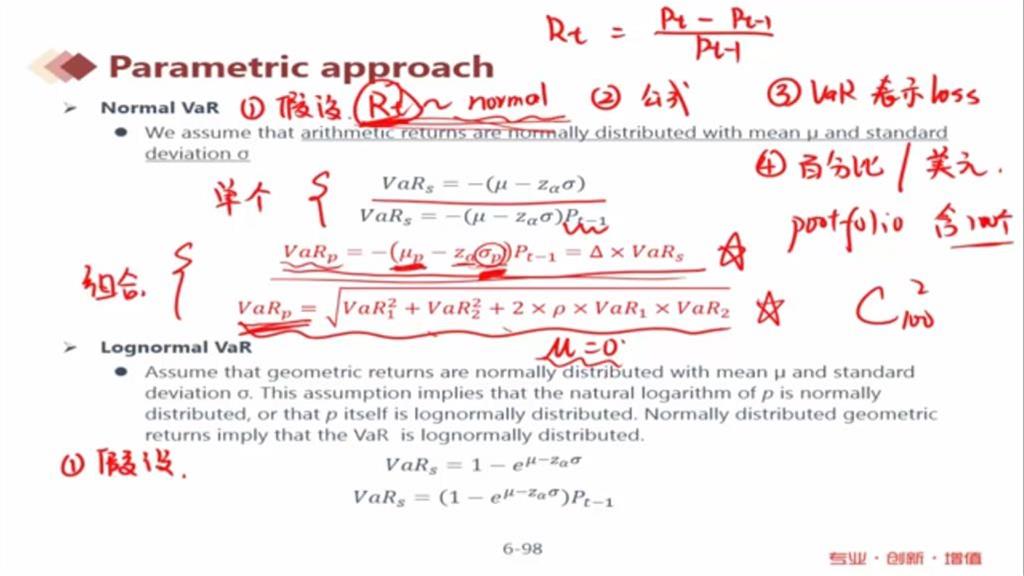 Rt = Pt - Pt-1 / Pt-1
Parametric approach
Normal VaR ① 假设 Rt ~ normal ② 公式 ③ VaR 表示 loss
We assume that arithmetic returns are normally distributed with mean μ and standard
deviation σ
④ 百分比 / 美元.
单个 { VaRₛ = −(μ − z_α σ)
VaRₛ = −(μ − z_α σ)P_{t−1}
portfolio 含100个
组合. { VaR_p = −(μ_p − z_α σ_p)P_{t−1} = Δ × VaRₛ ☆
VaR_p = √(VaR₁² + VaR₂² + 2 × ρ × VaR₁ × VaR₂) ☆
C²₁₀₀
Lognormal VaR
μ = 0
Assume that geometric returns are normally distributed with mean μ and standard
deviation σ. This assumption implies that the natural logarithm of p is normally
distributed, or that p itself is lognormally distributed. Normally distributed geometric
returns imply that the VaR is lognormally distributed.
① 假设.
VaRₛ = 1 − e^{μ−z_α σ}
VaRₛ = (1 − e^{μ−z_α σ})P_{t−1}
6-98
专业·创新·增值